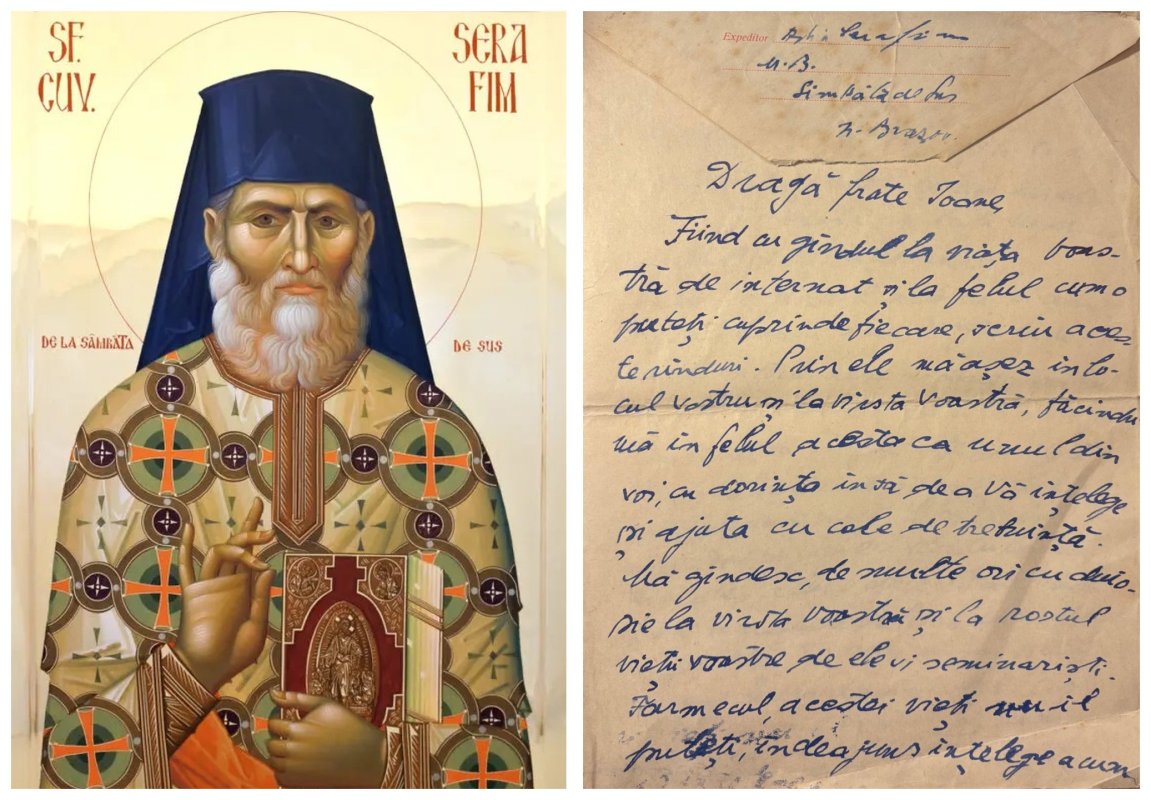 SF.
CUV.
SERA
FIM
DE LA SÂMBĂTA
DE SUS
Expeditor Serafim
M.B.
Simbăta de Sus
r. Brașov.
Dragă frate Ioane,
Fiind cu gîndul la viața voas-
tră de internat și la felul cum o
puteți cuprinde fiecare, scriu aces-
te rînduri. Prin ele mă așez în lo-
cul vostru și la vîrsta voastră, făcîndu
mă în felul acesta ca unul din
voi, cu dorința însă de a vă înțelege
și ajuta cu cele de trebuință.
Mă gîndesc, de multe ori cu duio-
șie la vîrsta voastră și la rostul
vieții voastre de elevi seminariști.
Farmecul acestei vieți nu-il
puteți, îndeajuns înțelege acum